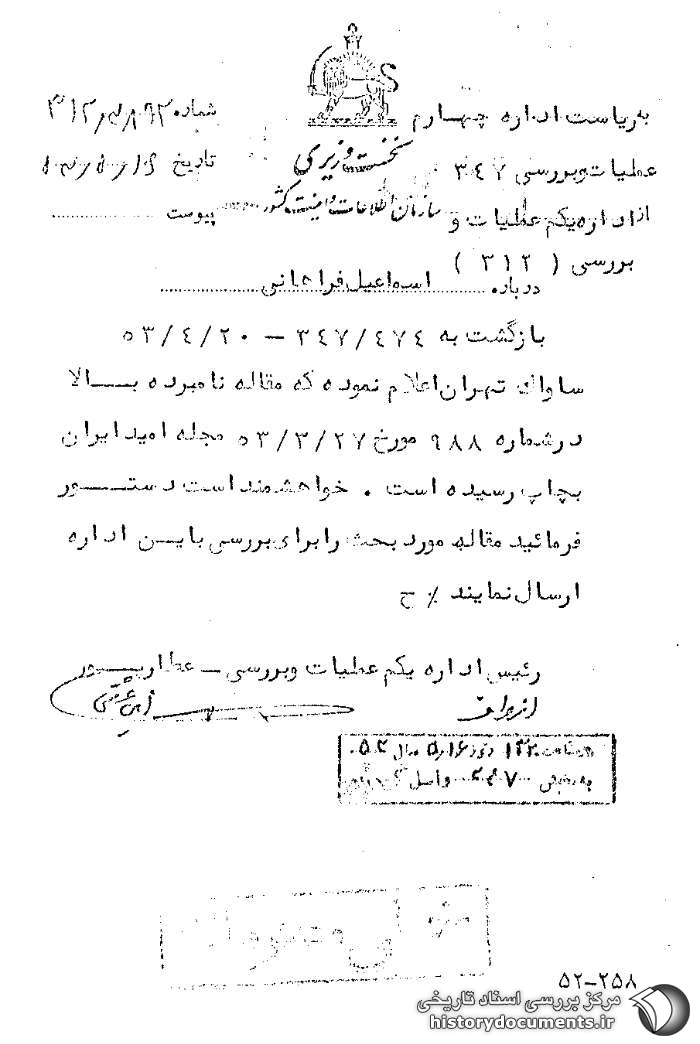 به ریاست اداره چهارم
عملیات و بررسی ۳۴۷
از اداره یکم عملیات و
بررسی ( ۳۱۲ )
نخست وزیری
سازمان اطلاعات و امنیت کشور
شماره
تاریخ
پیوست
درباره اسماعیل فراهانی
بازگشت به ۳۴۷/۴۷۴ - ۵۳/۴/۲۰
ساواك تهران اعلام نموده که مقاله نامبرده بالا
در شماره ۹۸۸ مورخ ۵۳/۳/۲۷ مجله امید ایران
بچاپ رسیده است . خواهشمند است دستور
فرمائید مقاله مورد بحث را برای بررسی باین اداره
ارسال نمایند ٪ ح
رئیس اداره یکم عملیات و بررسی - عطارپور
از طرف
به بخش
واصل
۵۲-۲۵۸
مرکز بررسی اسناد تاریخی
historydocuments.ir